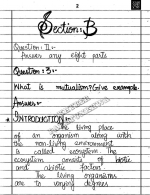 2
Section:B
Question:II:-
Answer any eight parts
Question:3:-
What is mutualism? Give example.
Answer:-
INTRODUCTION:-
The living place
of an organism along with
the non-living environment
is called ecosystem. The
ecosystem consists of biotic
and abiotic factors.
The living organisms
are to varying degrees